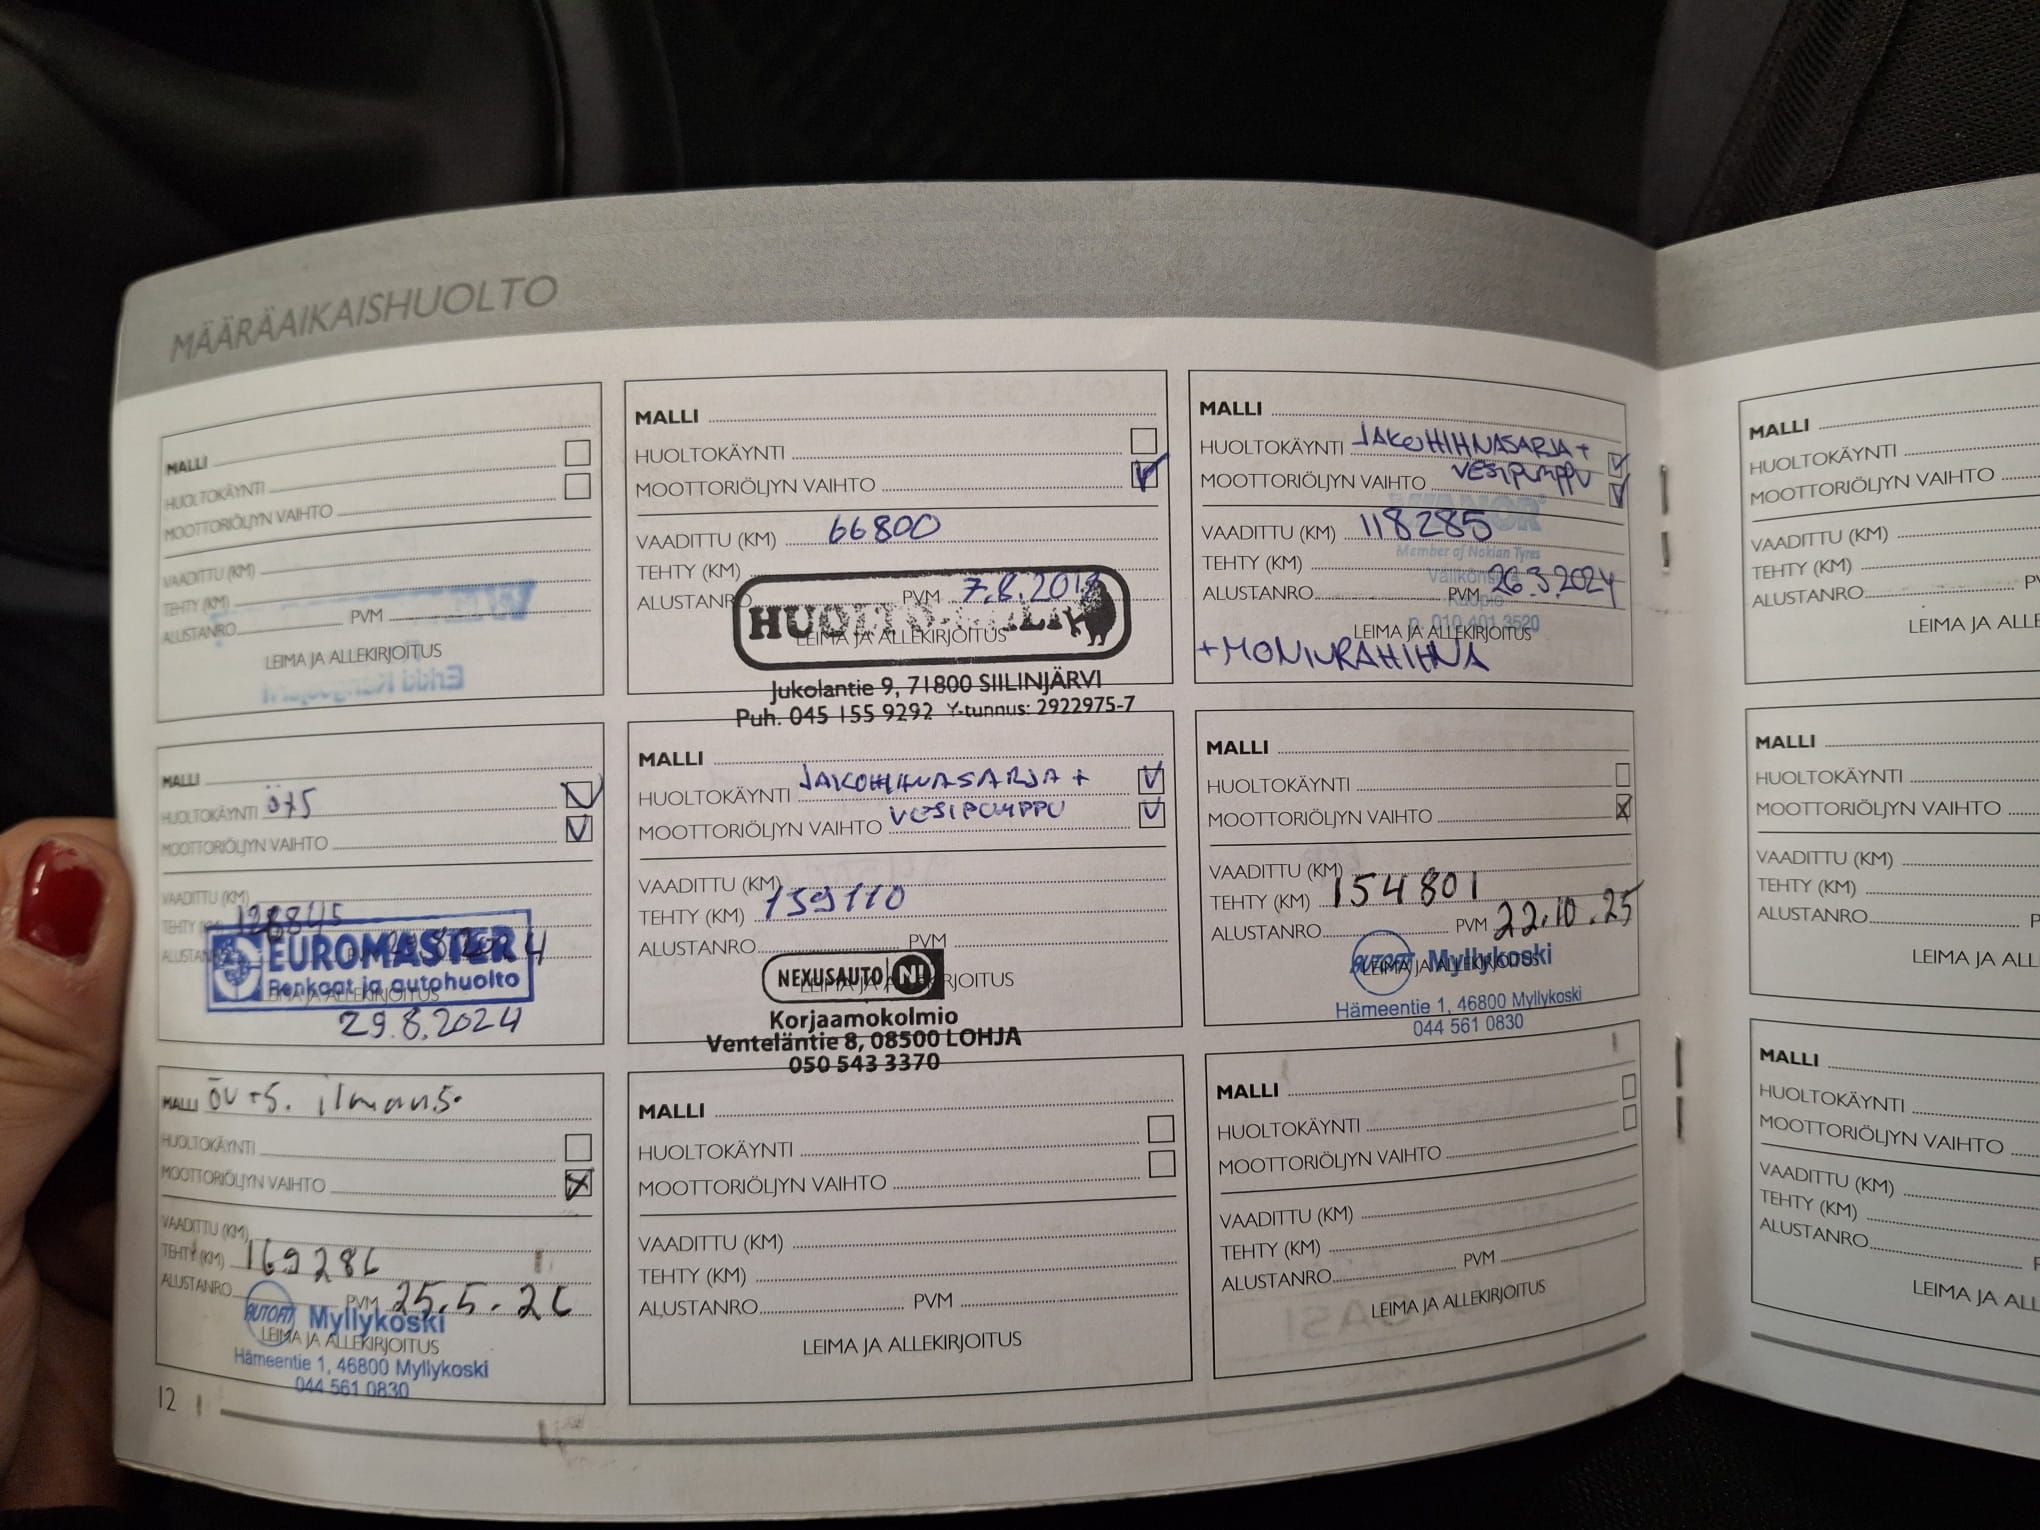 MÄÄRÄAIKAISHUOLTO
MALLI
HUOLTOKÄYNTI
MOOTTORIÖLJYN VAIHTO
VAADITTU (KM)
TEHTY (KM)
ALUSTANRO PVM
LEIMA JA ALLEKIRJOITUS
MALLI
HUOLTOKÄYNTI
MOOTTORIÖLJYN VAIHTO
VAADITTU (KM) 66800
TEHTY (KM)
ALUSTANRO PVM 7.8.2018
LEIMA JA ALLEKIRJOITUS
Jukolantie 9, 71800 SIILINJÄRVI
Puh. 045 155 9292 Y-tunnus: 2922975-7
MALLI
HUOLTOKÄYNTI JAKOHIHNASARJA +
MOOTTORIÖLJYN VAIHTO VESIPUMPPU
VAADITTU (KM) 118285
Member of Nokian Tyres
TEHTY (KM)
ALUSTANRO PVM 26.3.2024
p. 010 401 3520
LEIMA JA ALLEKIRJOITUS
+MONIURAHIHNA
MALLI
HUOLTOKÄYNTI ö+s
MOOTTORIÖLJYN VAIHTO
VAADITTU (KM)
TEHTY (KM) 128845
ALUSTANRO
EUROMASTER
Renkaat ja autohuolto
LEIMA JA ALLEKIRJOITUS
29.8.2024
MALLI
HUOLTOKÄYNTI JAKOHIHNASARJA +
MOOTTORIÖLJYN VAIHTO VESIPUMPPU
VAADITTU (KM)
TEHTY (KM) 139110
ALUSTANRO PVM
NEXUSAUTO N!
LEIMA JA ALLEKIRJOITUS
Korjaamokolmio
Venteläntie 8, 08500 LOHJA
050 543 3370
MALLI
HUOLTOKÄYNTI
MOOTTORIÖLJYN VAIHTO
VAADITTU (KM)
TEHTY (KM) 154801
ALUSTANRO PVM 22.10.25
AUTOFIT Myllykoski
LEIMA JA ALLEKIRJOITUS
Hämeentie 1, 46800 Myllykoski
044 561 0830
MALLI öv+s. ilmans.
HUOLTOKÄYNTI
MOOTTORIÖLJYN VAIHTO
VAADITTU (KM)
TEHTY (KM) 169286
ALUSTANRO PVM 25.5.26
AUTOFIT Myllykoski
LEIMA JA ALLEKIRJOITUS
Hämeentie 1, 46800 Myllykoski
044 561 0830
MALLI
HUOLTOKÄYNTI
MOOTTORIÖLJYN VAIHTO
VAADITTU (KM)
TEHTY (KM)
ALUSTANRO PVM
LEIMA JA ALLEKIRJOITUS
MALLI
HUOLTOKÄYNTI
MOOTTORIÖLJYN VAIHTO
VAADITTU (KM)
TEHTY (KM)
ALUSTANRO PVM
LEIMA JA ALLEKIRJOITUS
12
MALLI
HUOLTOKÄYNTI
MOOTTORIÖLJYN VAIHTO
VAADITTU (KM)
TEHTY (KM)
ALUSTANRO
LEIMA JA ALLE
MALLI
HUOLTOKÄYNTI
MOOTTORIÖLJYN VAIHTO
VAADITTU (KM)
TEHTY (KM)
ALUSTANRO
LEIMA JA ALL
MALLI
HUOLTOKÄYNTI
MOOTTORIÖLJYN VAIHTO
VAADITTU (KM)
TEHTY (KM)
ALUSTANRO
LEIMA JA ALL